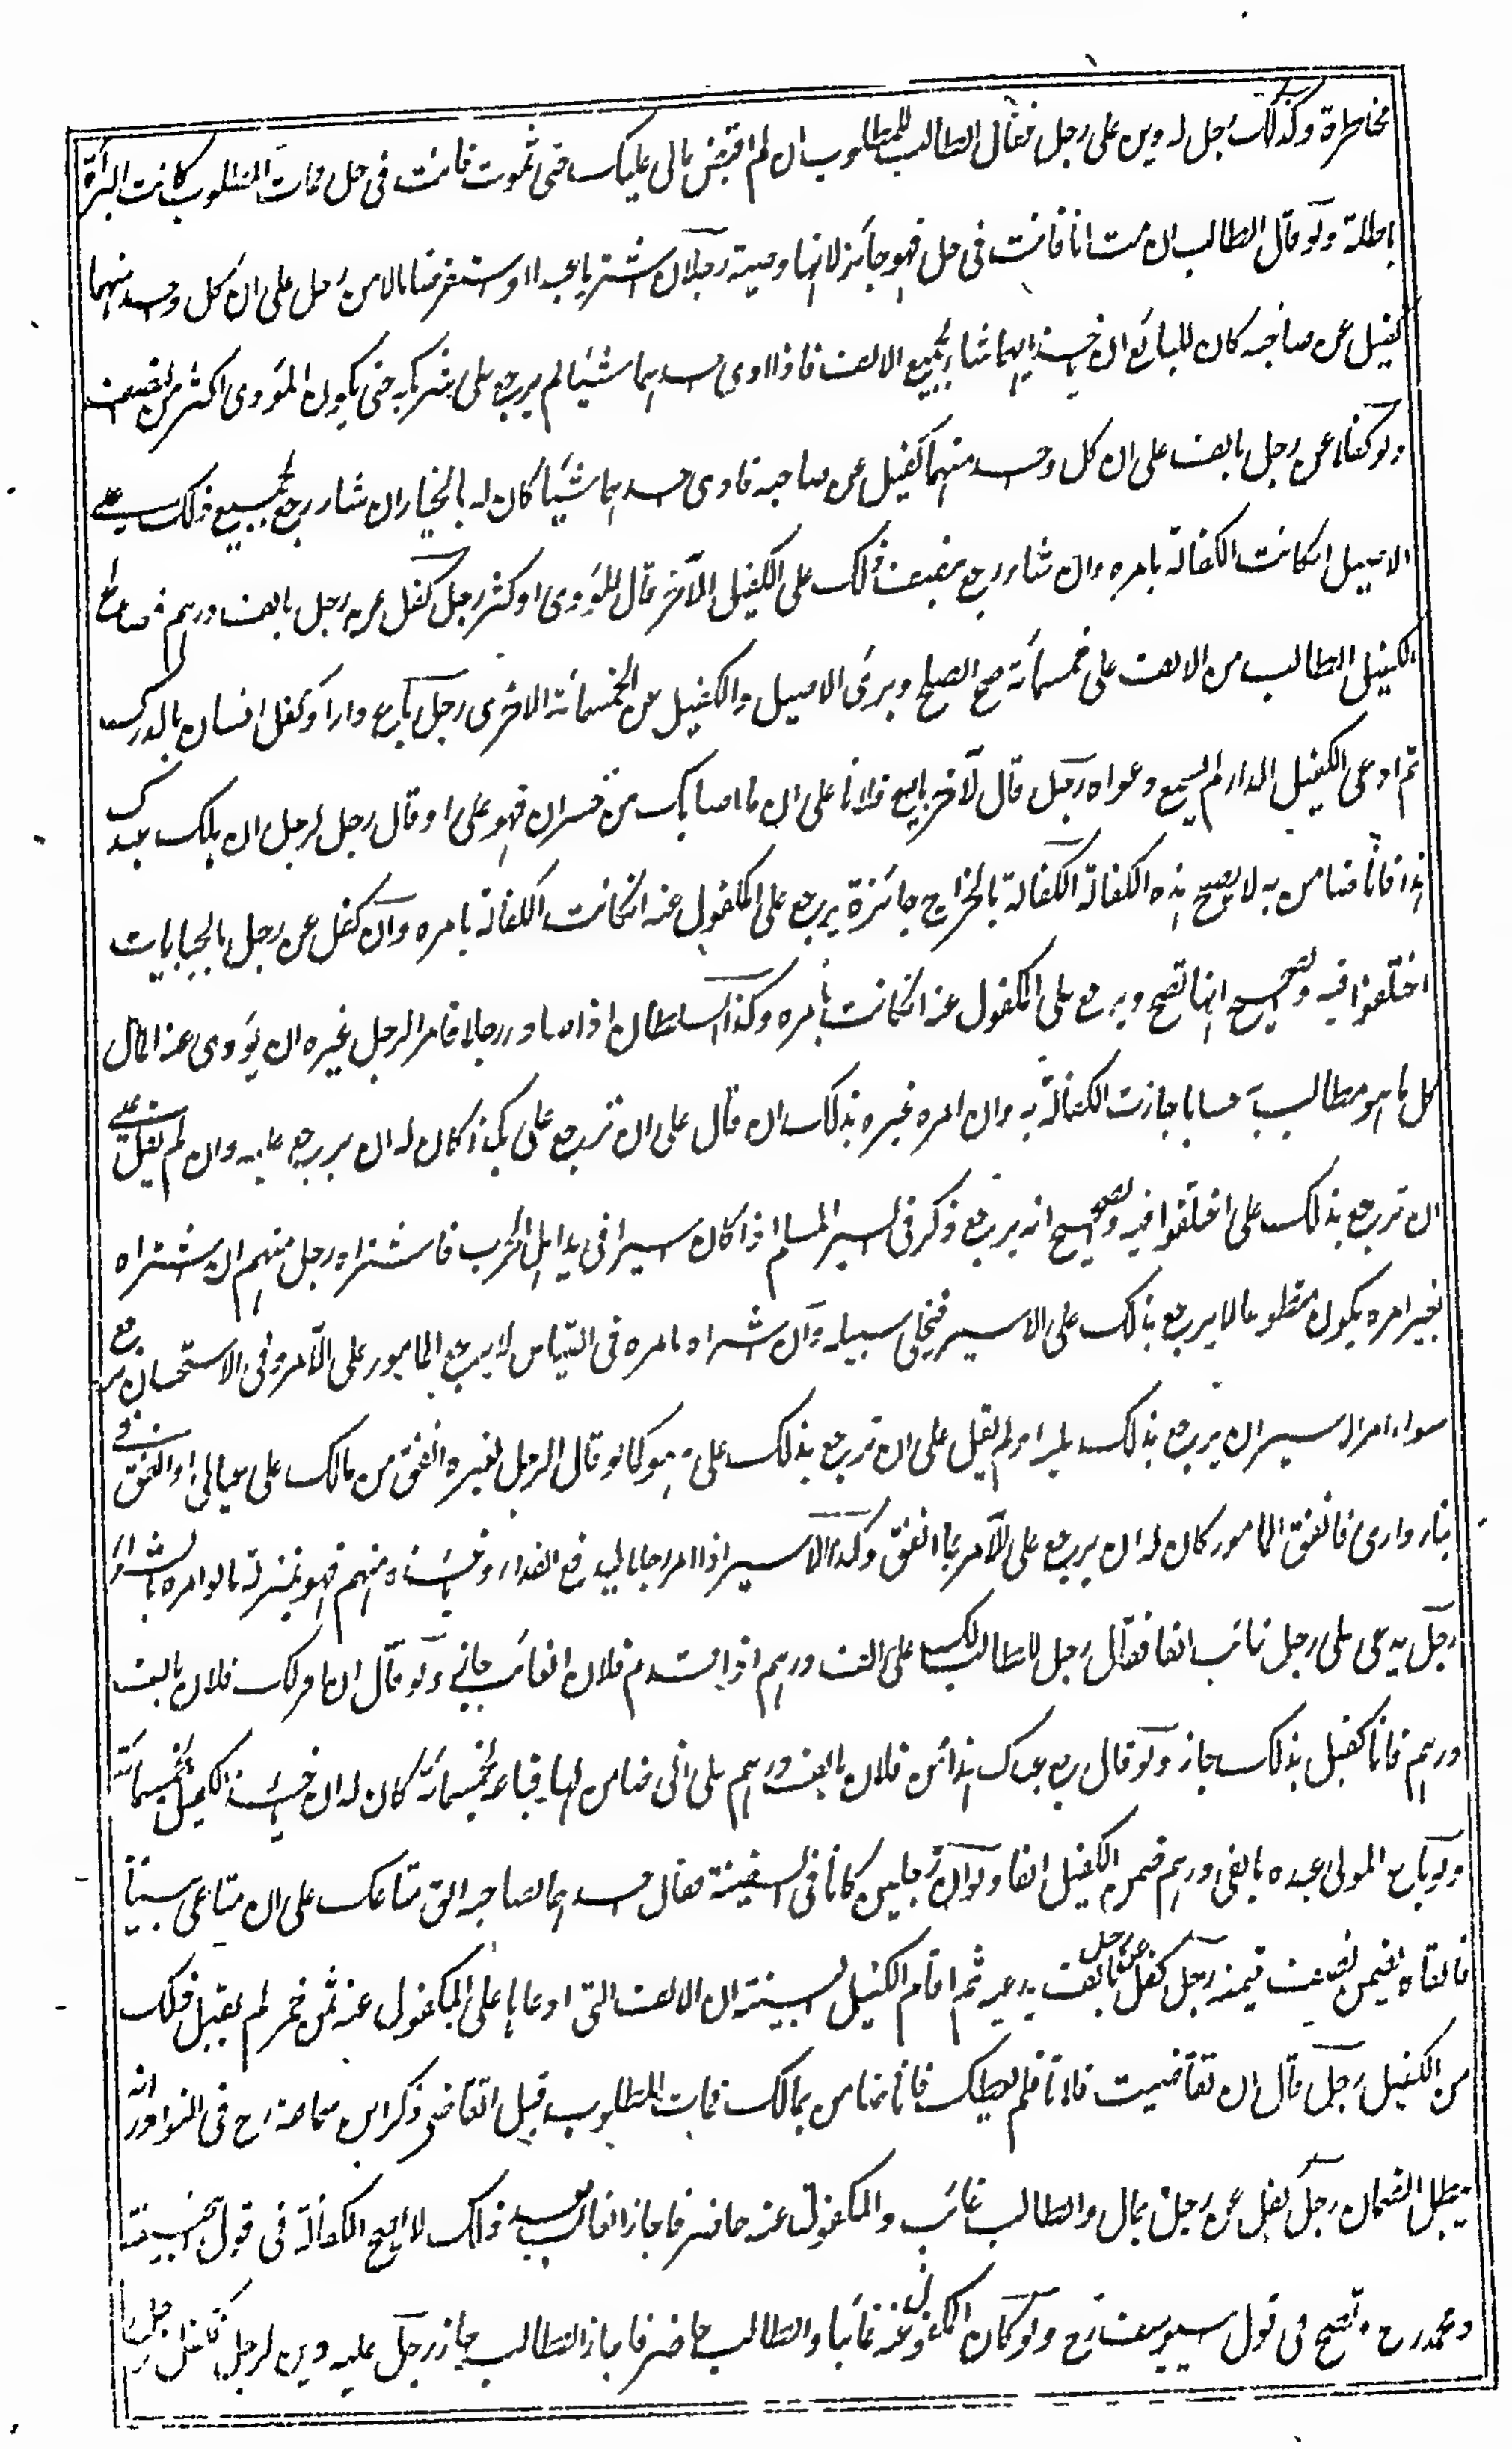 مخاطرة وكذلك رجل له دين على رجل فقال الطالب للمطلوب ان لم اقبض مالى عليك حتى تموت فانت فى حل فمات المطلوب كانت البرأة
باطلة ولو قال الطالب ان مت انا فانت فى حل فهو جائز لانها وصية رجلان اشتريا عبدا او استقرضا مالا من رجل على ان كل واحد منهما
كفيل عن صاحبه كان للبائع ان ياخذ ايهما شاء بجميع الالف فاذا ادى احدهما شيئا لم يرجع على شريكه حتى يكون المؤدى اكثر من النصف
ولو كفلا عن رجل بالف على ان كل واحد منهما كفيل عن صاحبه فادى احدهما شيئا كان له بالخيار ان شاء رجع بجميع ذلك على
الاصيل ان كانت الكفالة بامره وان شاء رجع بنصف ذلك على الكفيل الآخر قال المؤدى او كثر رجل كفل عن رجل بالف درهم فصالح
الكفيل الطالب من الالف على خمسمائة صح الصلح وبرئ الاصيل والكفيل من الخمسمائة الاخرى رجل باع دارا وكفل انسان بالدرك
ثم ادعى الكفيل الدار لم يسمع دعواه رجل قال لآخر بايع فلانا على ان ما اصابك من خسران فهو على او قال رجل لرجل ان هلك عبدك
هذا فانا ضامن به لا يصح هذه الكفالة الكفالة بالخراج جائزة يرجع على المكفول عنه ان كانت الكفالة بامره وان كفل عن رجل بالجبايات
اختلفوا فيه والصحيح انها تصح ويرجع على المكفول عنه ان كانت بامره وكذا السلطان اذا صادر رجلا فامر الرجل غيره ان يؤدى عنه المال
كل ما هو مطالب به حسا جازت الكفالة به وان امره غيره بذلك ان قال على ان ترجع على بكذا كان له ان يرجع عليه وان لم يقل على
ان ترجع بذلك على اختلفوا فيه والصحيح انه يرجع وذكر فى السير المسلم اذا كان اسيرا فى يد اهل الحرب فاشتراه رجل منهم ان اشتراه
بغير امره يكون متطوعا لا يرجع بذلك على الاسير فيخلى سبيله وان اشتراه بامره فى القياس لا يرجع المامور على الآمر وفى الاستحسان يرجع
سواء امر الاسير ان يرجع بذلك عليه او لم يقل على ان ترجع بذلك على وهو كما لو قال الرجل لغيره انفق من مالك على عيالى او انفق فى
بناء دارى فانفق المامور كان له ان يرجع على الآمر بما انفق وكذا الاسير اذا امر رجلا ليدفع الفداء وياخذه منهم فهو بمنزلة ما لو امره بالشراء
رجل يدعى على رجل غائب الفا فقال رجل للطالب لك على الف درهم اذا قدم فلان الغائب جائز ولو قال ان اقر لك فلان بالف
درهم فانا كفيل بذلك جاز ولو قال بع عبدك هذا من فلان بالف درهم على انى ضامن لها فباعه بخمسمائة كان له ان ياخذ الكفيل بخمسمائة
ولو باع المولى عبده بالفى درهم ضمن الكفيل الفا ولو ان رجلين كانا فى السفينة فقال احدهما لصاحبه الق متاعك على ان متاعى بيننا
فالقاه يضمن نصف قيمته رجل كفل عن رجل بالف يدعيه ثم اقام الكفيل البينة ان الالف التى ادعاها على المكفول عنه ثمن خمر لم يقبل ذلك
من الكفيل رجل قال ان تقاضيت فلانا فلم يعطك فانا ضامن بمالك فمات المطلوب قبل التقاضى ذكر ابن سماعة رح فى النوادر انه
يبطل الضمان رجل كفل عن رجل بمال والطالب غائب والمكفول عنه حاضر فاجاز الغائب بعد ذلك لا تصح الكفالة فى قول ابى حنيفة
ومحمد رح وتصح فى قول ابى يوسف رح ولو كان المكفول عنه غائبا والطالب حاضر فاجاز الطالب جاز رجل عليه دين لرجل فكفل رجل